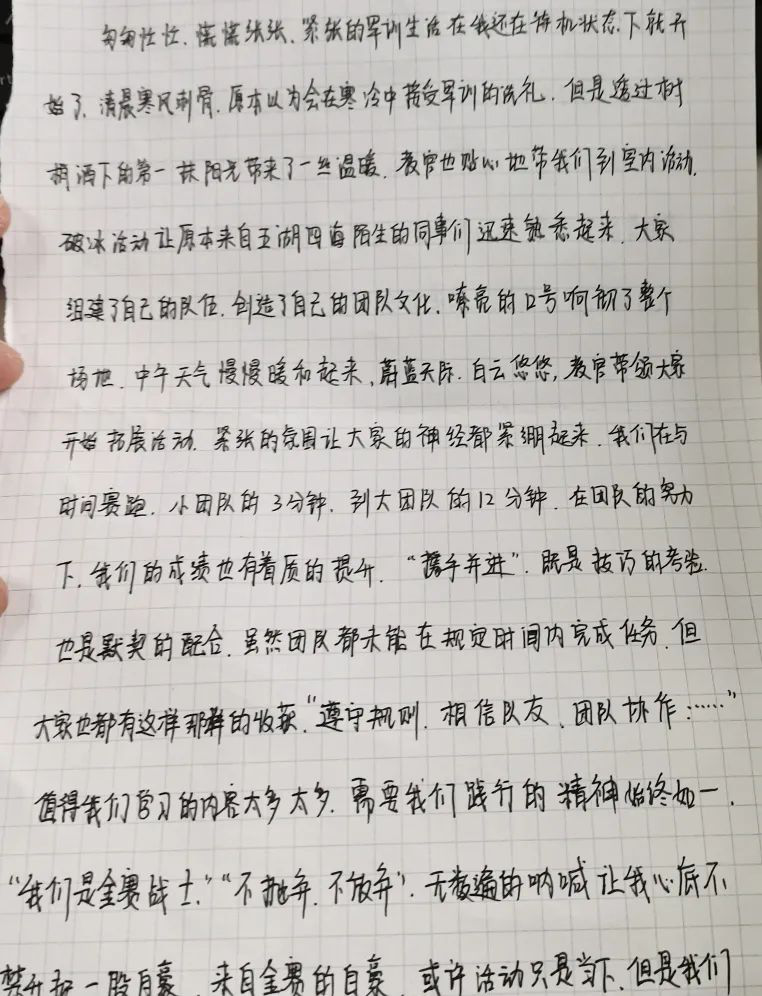 匆匆忙忙、慌慌张张、紧张的军训生活在我还在待机状态下就开
始了，清晨寒风刺骨，原本以为会在寒冷中接受军训的洗礼，但是透过树
梢洒下的第一抹阳光带来了一丝温暖，教官也贴心地带我们到室内活动，
破冰活动让原本来自五湖四海陌生的同事们迅速熟悉起来，大家
组建了自己的队伍，创造了自己的团队文化，嘹亮的口号响彻了整个
场地，中午天气慢慢暖和起来，蔚蓝天际，白云悠悠，教官带领大家
开始拓展活动，紧张的氛围让大家的神经都紧绷起来，我们在与
时间赛跑，小团队的3分钟，到大团队的12分钟，在团队的努力
下，我们的成绩也有着质的提升，“携手并进”，既是技巧的考验，
也是默契的配合，虽然团队都未能在规定时间内完成任务，但
大家也都有这样那样的收获，“遵守规则，相信队友、团队协作……”
值得我们学习的内容太多太多，需要我们践行的精神始终如一，
“我们是金赛战士，”“不抛弃，不放弃”，无数遍的呐喊让我心底不
禁升起一股自豪，来自金赛的自豪，或许活动只是当下，但是我们